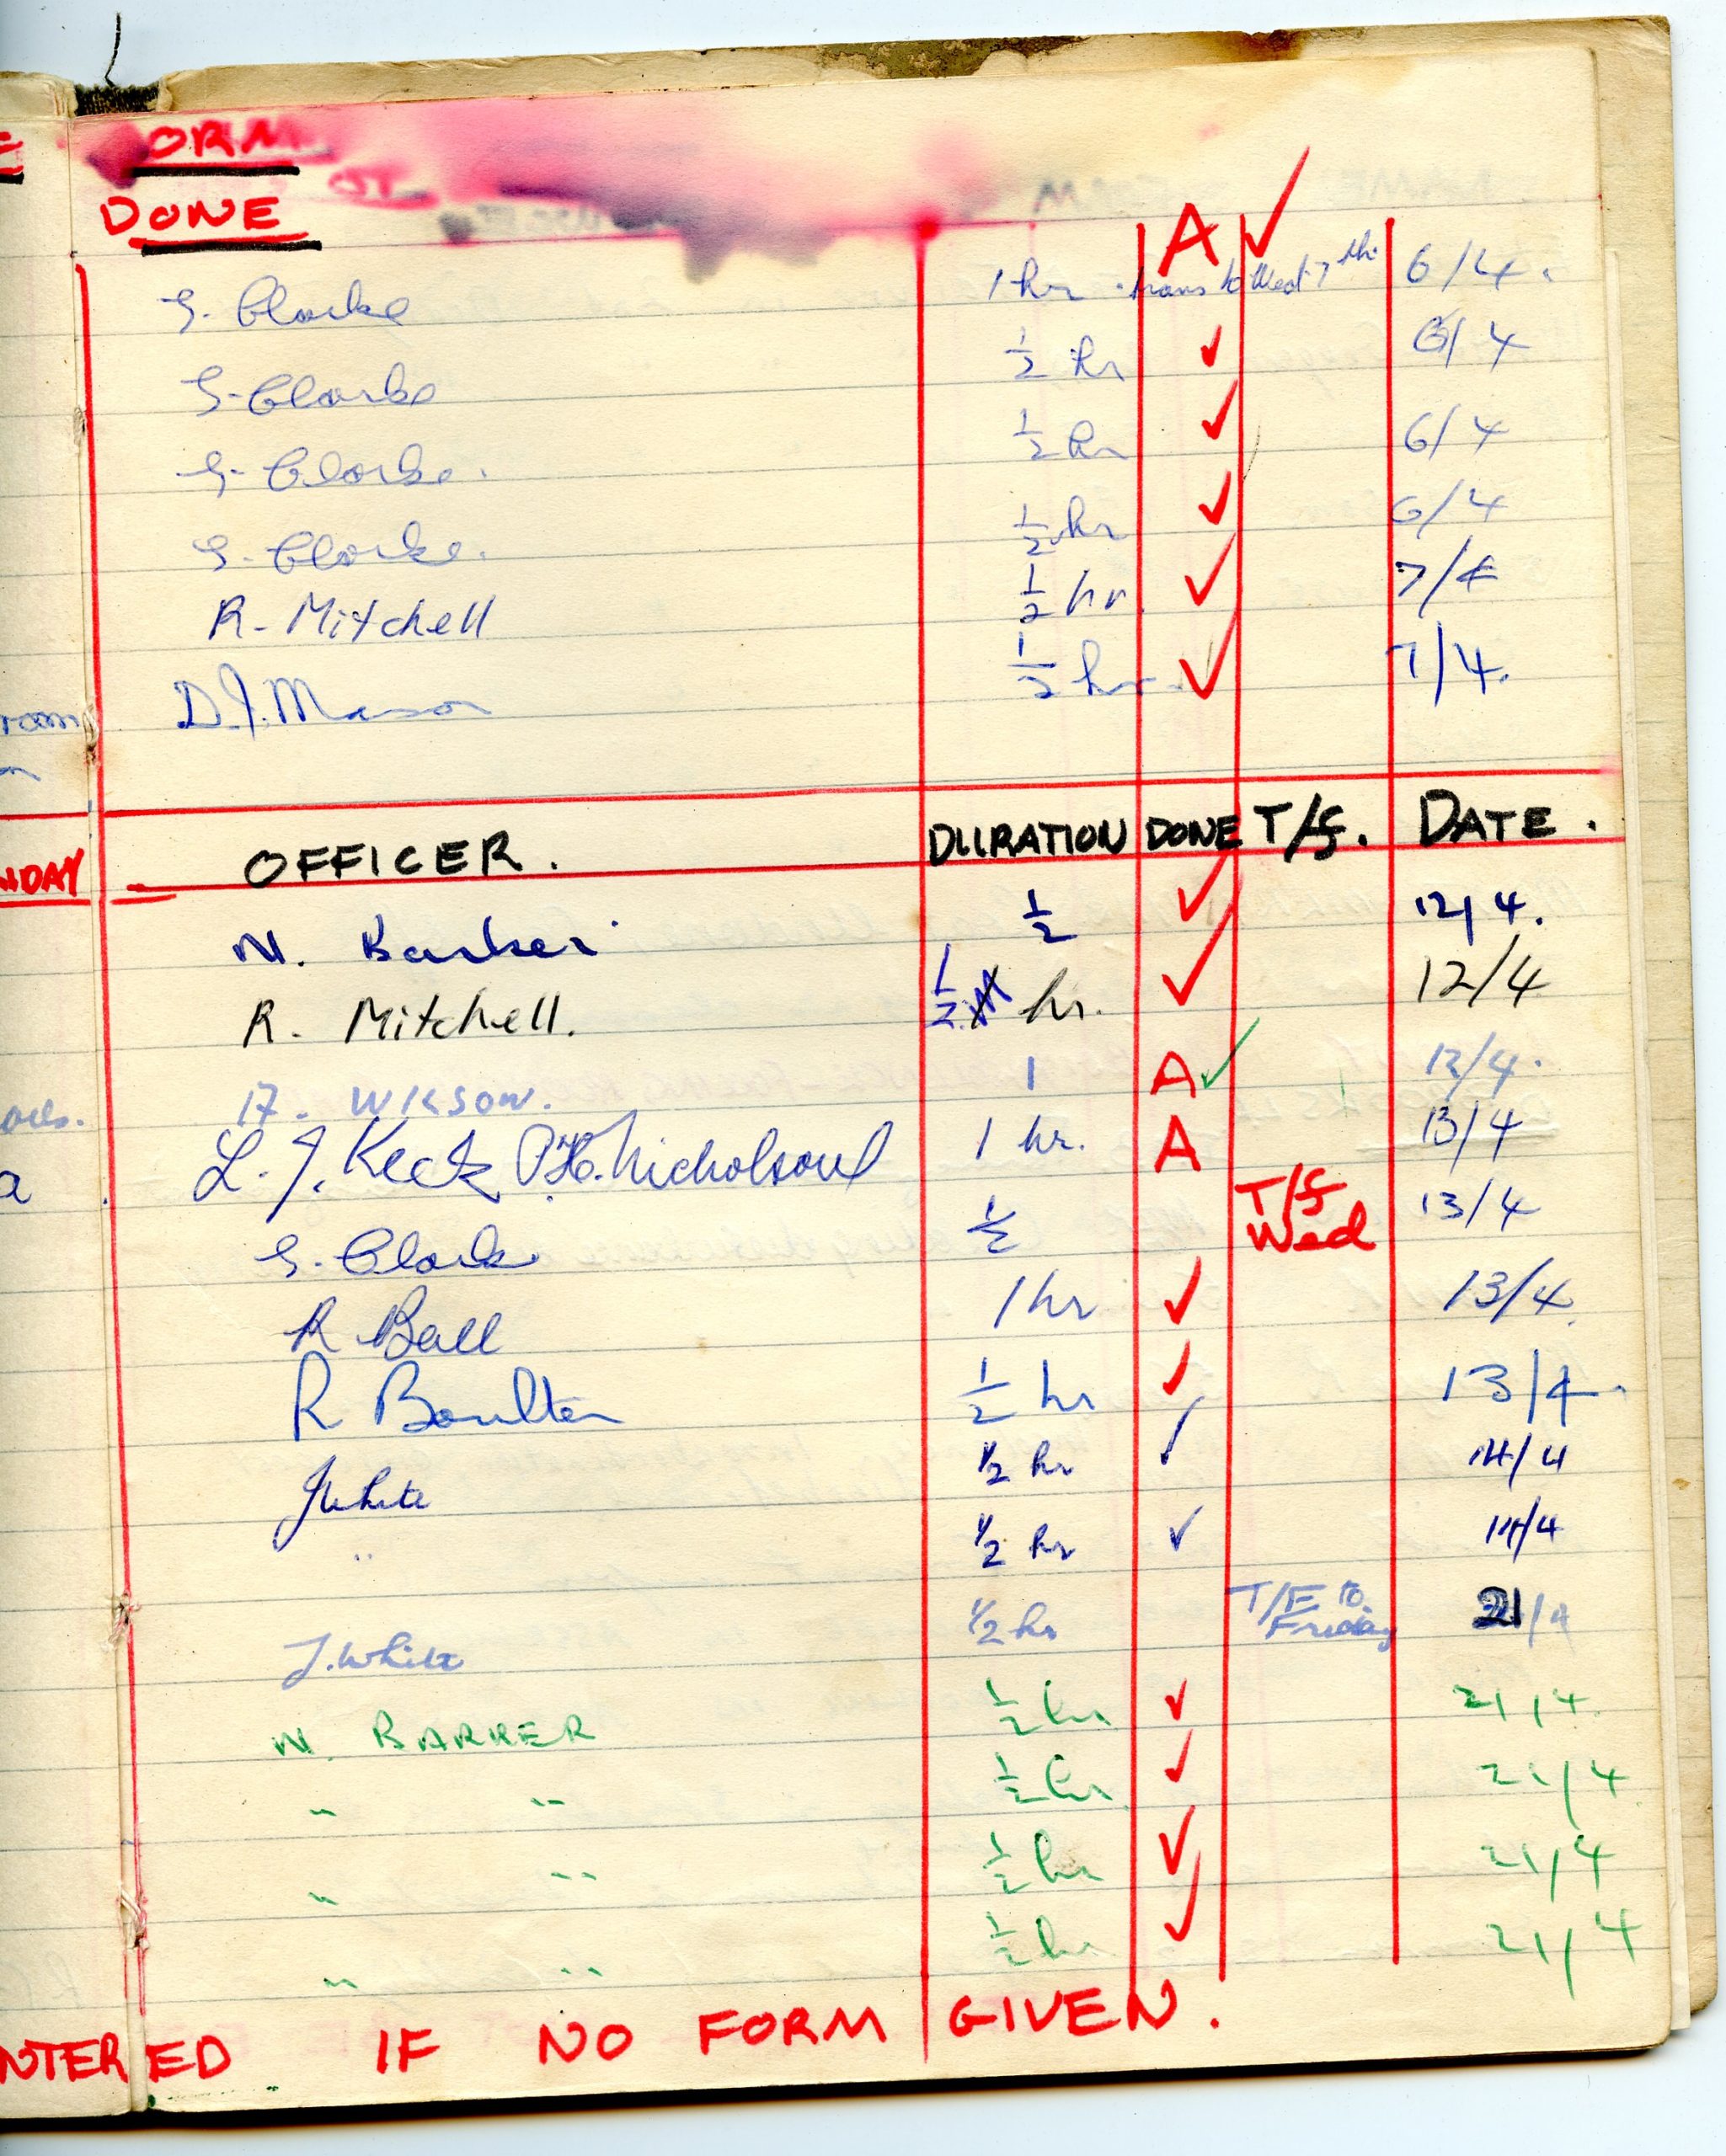 ORM
DONE
A ✓
S. Clarke 1 hr. trans to Wed 7th 6/4.
S. Clarke ½ hr ✓ 6/4
S. Clarke. ½ hr ✓ 6/4
S. Clarke. ½ hr ✓ 6/4
R. Mitchell ½ hr. ✓ 7/4
room D.J. Mason ½ hr. ✓ 7/4.
OFFICER. DURATION DONE T/F. DATE.
NDAY
N. Barker ½ ✓ 12/4.
R. Mitchell. ½ hr. ✓ 12/4
1 A ✓ 12/4.
L. J. Keck P.H. Nicholson 1 hr. A 13/4
S. Clarke ½ T/F Wed 13/4
R Ball 1 hr ✓ 13/4.
R Boulter ½ hr ✓ 13/4.
J White ½ hr ✓ 14/4
" ½ hr ✓ 14/4
J. White ½ hr T/F to Friday 21/4
N. BARKER ½ hr ✓ 21/4.
" " ½ hr ✓ 21/4.
" " ½ hr ✓ 21/4
" " ½ hr ✓ 21/4
NTERED IF NO FORM GIVEN.